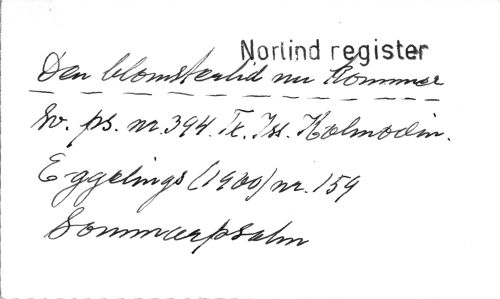 Norlind register
Den blomstertid nu kommer
Sv. ps. nr. 394. Tx. Isr. Kolmodin.
Eggelings (1900) nr. 159
Sommarpsalm